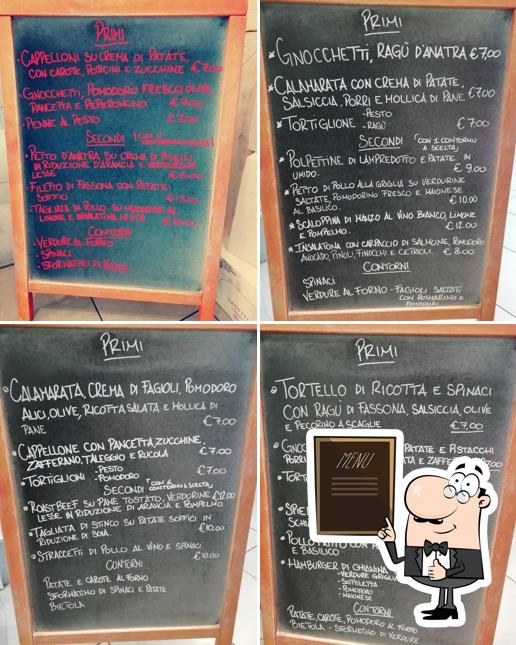 PRIMI
CAPPELLONI SU CREMA DI PATATE,
CON CAROTE, PORCINI E ZUCCHINE €7.00
GNOCCHETTI, POMODORO FRESCO, OLIVE,
PANCETTA E PEPERONCINO €7.00
PENNE AL PESTO €7.00
SECONDI
PETTO D'ANATRA SU CREMA DI PISELLI
IN RIDUZIONE D'ARANCIA E VERDURINE
LESSE
FILETTO DI FASSONA CON PATATE
SOFFICI
TAGLIATA DI POLLO SU
LIMONE E INSALATINA MISTA
CONTORNI
-VERDURE AL FORNO
-SPINACI
-SFORMATINO DI
PRIMI
GNOCCHETTI, RAGÙ D'ANATRA €7,00
CALAMARATA CON CREMA DI PATATE,
SALSICCIA, PORRI E MOLLICA DI PANE €7,00
-PESTO
TORTIGLIONE -RAGÙ €7,00
SECONDI (CON 1 CONTORNO A SCELTA)
POLPETTINE DI LAMPREDOTTO E PATATE IN
UMIDO. €9.00
PETTO DI POLLO ALLA GRIGLIA SU VERDURINE
SALTATE, POMODORINO FRESCO E MAIONESE
AL BASILICO. €10.00
SCALOPPINA DI MANZO AL VINO BIANCO, LIMONE
E POMPELMO. €12.00
INSALATONA CON CARPACCIO DI SALMONE, POMODORO
AVOCADO, PINOLI, FINOCCHI E CETRIOLI. €8.00
CONTORNI
SPINACI
VERDURE AL FORNO - FAGIOLI SALTATI
CON ROSMARINO E
POMODORI
PRIMI
CALAMARATA, CREMA DI FAGIOLI, POMODORO
ALICI, OLIVE, RICOTTA SALATA E MOLLICA DI
PANE €7.00
CAPPELLONE CON PANCETTA, ZUCCHINE,
ZAFFERANO, TALEGGIO E RUCOLA €7.00
-PESTO
TORTIGLIONI -POMODORO €7.00
SECONDI (CON 1 CONTORNO A SCELTA)
ROASTBEEF SU PANE TOSTATO, VERDURINE €12.00
LESSE IN RIDUZIONE DI ARANCIA E POMPELMO
TAGLIATA DI STINCO SU PATATE SOFFICI IN
RIDUZIONE DI SOIA. €10.00
STRACCETTI DI POLLO AL VINO E SPINACI.
€10.00
CONTORNI
PATATE E CAROTE AL FORNO
SFORMATINO DI SPINACI E PATATE
BIETOLA
PRIMI
TORTELLO DI RICOTTA E SPINACI
CON RAGÙ DI FASSONA, SALSICCIA, OLIVE
E PECORINO A SCAGLIE €7,00
PATATE E PISTACCHI
MENU
E BASILICO
HAMBURGER DI CHIANINA
-VERDURE
-POMODORO
-MAIONESE
CONTORNI
PATATE, CAROTE, POMODORO AL FORNO
BIETOLA - SFORMATINO DI VERDURE